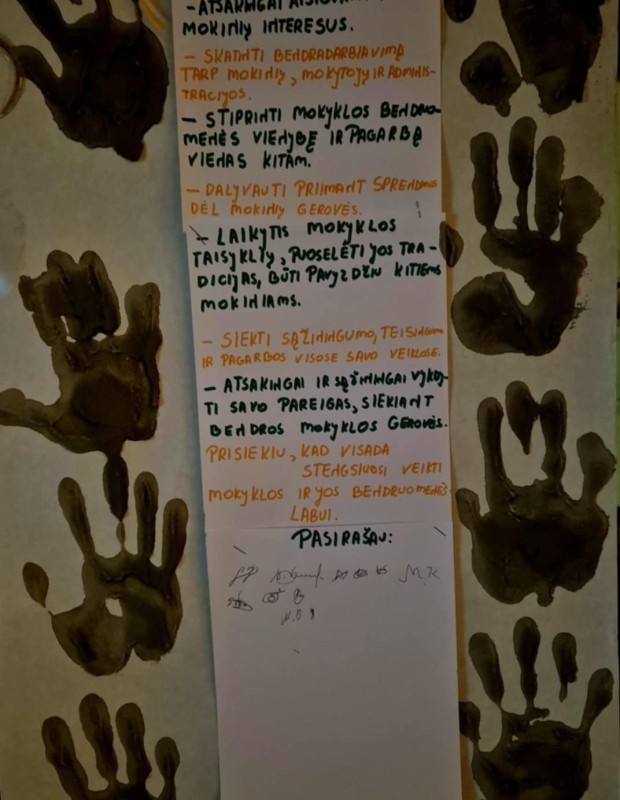 - ATSAKINGAI
MOKINIŲ INTERESUS.
- SKATINTI BENDRADARBIAVIMĄ
TARP MOKINIŲ, MOKYTOJŲ IR ADMINIS-
TRACIJOS.
- STIPRINTI MOKYKLOS BENDRUO-
MENĖS VIENYBĘ IR PAGARBĄ
VIENAS KITAM.
- DALYVAUTI PRIIMANT SPRENDIMUS
DĖL MOKINIŲ GEROVĖS.
- LAIKYTIS MOKYKLOS
TAISYKLIŲ, PUOSELĖTI JOS TRA-
DICIJAS, BŪTI PAVYZDŽIU KITIEMS
MOKINIAMS.
- SIEKTI SĄŽININGUMO, TEISINGUMO
IR PAGARBOS VISOSE SAVO VEIKLOSE.
- ATSAKINGAI IR SĄŽININGAI VYKDY-
TI SAVO PAREIGAS, SIEKIANT
BENDROS MOKYKLOS GEROVĖS.
PRISIEKIU, KAD VISADA
STENGSIUOSI VEIKTI
MOKYKLOS IR JOS BENDRUOMENĖS
LABUI.
PASIRAŠAU:
M.K